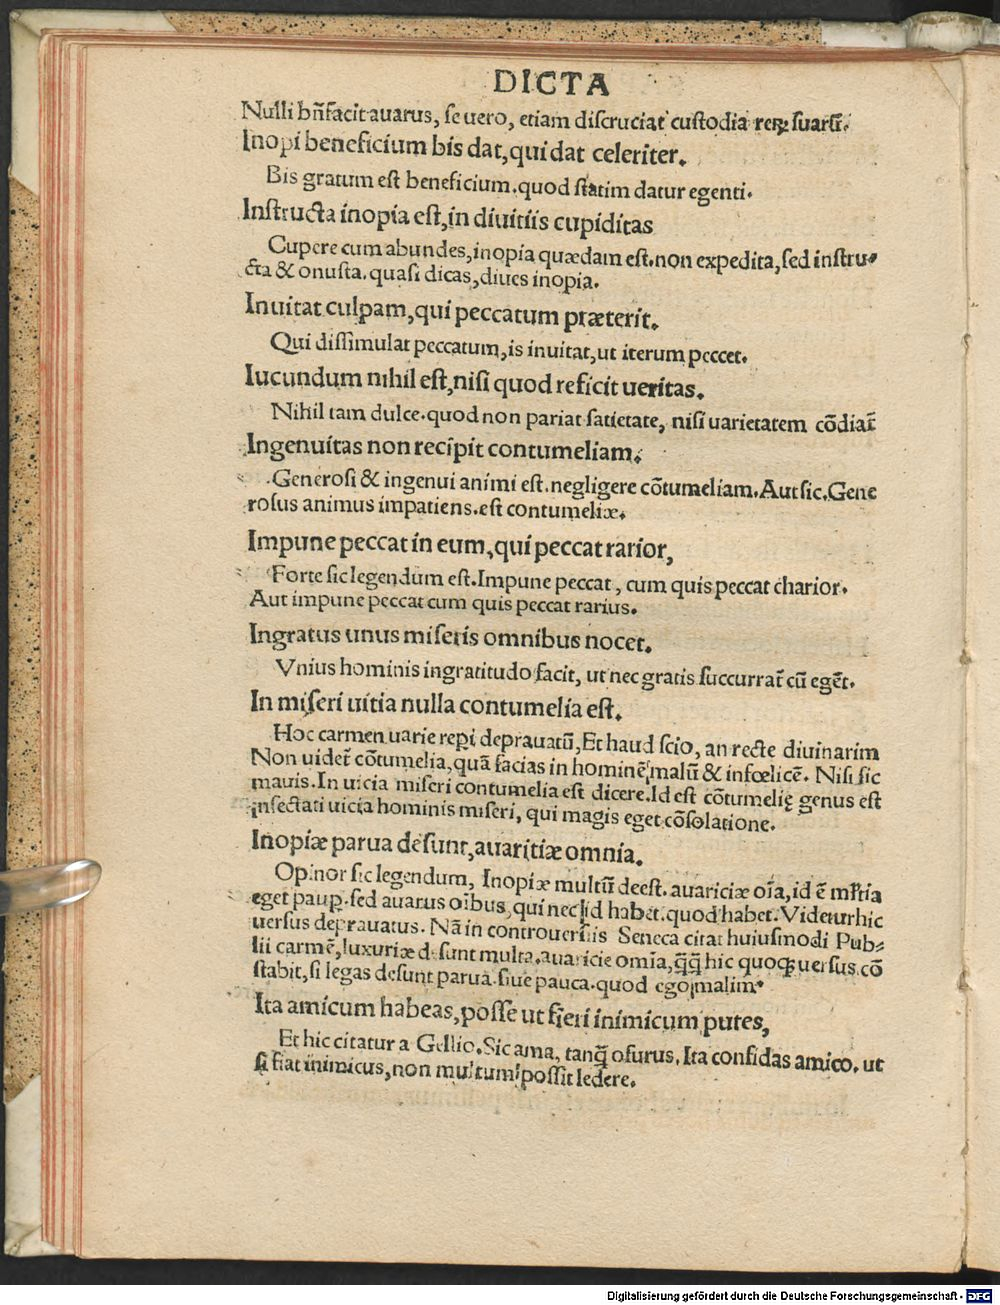 DICTA
Nulli bn̄facit auarus, se uero, etiam discruciat custodia reꝝ suarū.
Inopi beneficium bis dat, qui dat celeriter.
Bis gratum est beneficium. quod statim datur egenti.
Instructa inopia est, in diuitiis cupiditas
Cupere cum abundes, inopia quædam est. non expedita, sed instru-
cta & onusta. quasi dicas, diues inopia.
Inuitat culpam, qui peccatum præterit.
Qui dissimulat peccatum, is inuitat, ut iterum peccet.
Iucundum nihil est, nisi quod reficit ueritas.
Nihil tam dulce. quod non pariat satietate, nisi uarietatem cōdiat᷑
Ingenuitas non recipit contumeliam.
Generosi & ingenui animi est. negligere cōtumeliam. Aut sic. Gene
rosus animus impatiens. est contumeliæ.
Impune peccat in eum, qui peccat rarior,
Forte sic legendum est. Impune peccat, cum quis peccat charior.
Aut impune peccat cum quis peccat rarius.
Ingratus unus miseris omnibus nocet.
Vnius hominis ingratitudo facit, ut nec gratis succurrat᷑ cū egēt.
In miseri uitia nulla contumelia est.
Hoc carmen uarie reperi deprauatū, Et haud scio, an recte diuinarim
Non uidet᷑ cōtumelia, quā facias in hominē malū & infœlicē. Nisi sic
mauis. In uicia miseri contumelia est dicere. Id est cōtumelię genus est
insectati uicia hominis miseri, qui magis eget cōsolatione.
Inopiæ parua desunt, auaritiæ omnia.
Opinor sic legendum, Inopiæ multū deest. auariciæ oīa, id ē mĺtia
eget paup. sed auarus oībus, qui nec id habet. quod habet. Videtur hic
uersus deprauatus. Nā in controuersiis Seneca citat huiusmodi Pub-
lii carmē, luxuriæ desunt multa. auaricie omīa, q̄q̄ hic quoqꝫ uersus cō
stabit, si legas desunt parua. siue pauca. quod ego malim.
Ita amicum habeas, posse ut fieri inimicum putes,
Et hic citatur a Gellio. Sic ama, tanq̄ osurus. Ita confidas amico. ut
si fiat inimicus, non multum possit ledere.
Digitalisierung gefördert durch die Deutsche Forschungsgemeinschaft - DFG